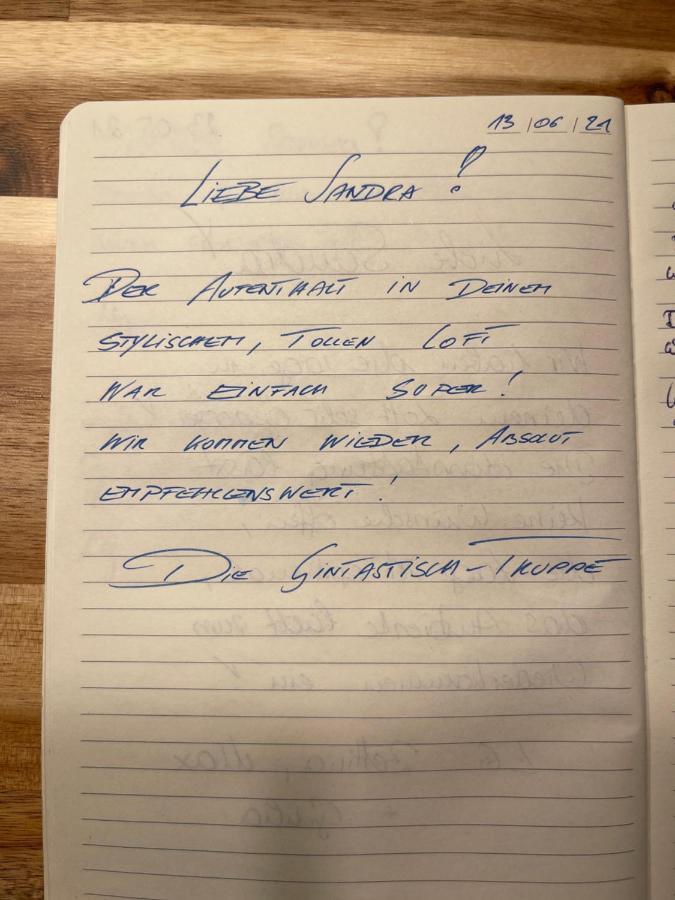 13/06/21
LIEBE SANDRA!
DER AUFENTHALT IN DEINEM
STYLISCHEM, TOLLEN LOFT
WAR EINFACH SUPER!
WIR KOMMEN WIEDER, ABSOLUT
EMPFEHLENSWERT!
DIE GINTASTISCH-TRUPPE